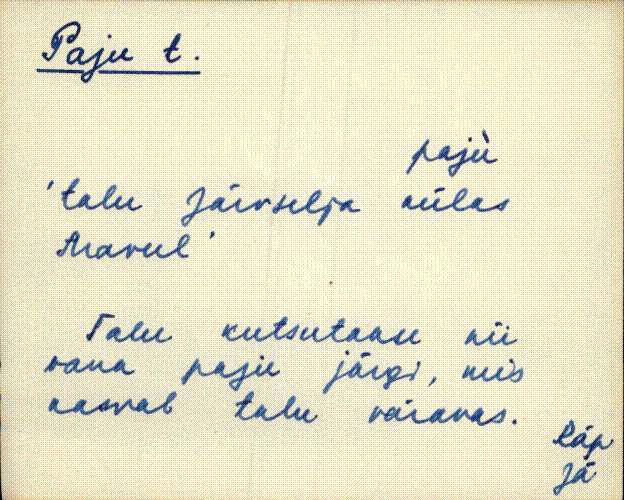 Paju t.
pajù
'talu Järvselja külas
Aravul'
Talu kutsutakse nii
vana paju järgi, mis
kasvab talu väravas.
Räp
Jä